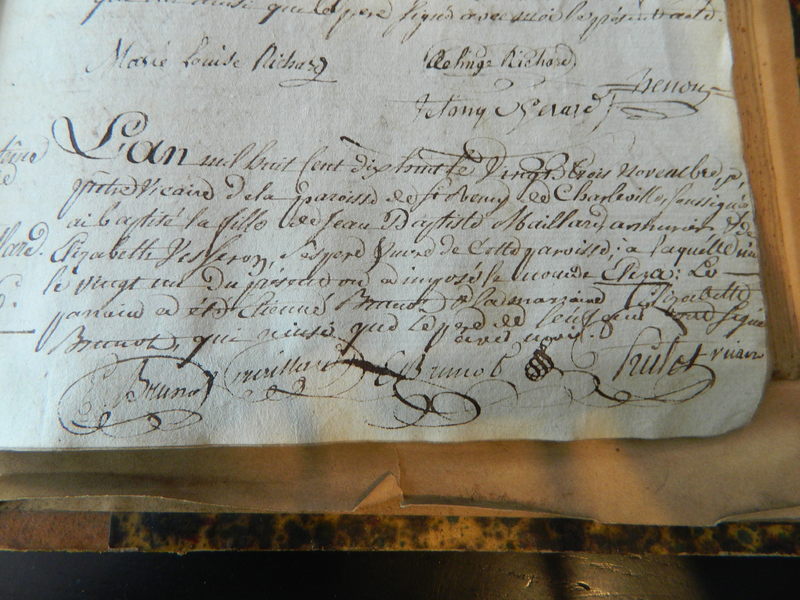 ainsi que le pere signé avec moi le présent acte.
Marie Louise Richard
Richard
L'an mil huit Cent dix huit le Vingt trois novembre, je,
prêtre Vicaire de la paroisse de St Remy de Charleville, soussigné
ai baptisé la fille de Jean Baptiste Maillard, armurier, et de
Elizabette, Ses pere & mere de Cette paroisse; a laquelle
le vingt un du présent on a imposé le nom de Eliza: Le
parrain a été Etienne Brunot & la marraine Elizabette
Brunot, qui ainsi que le pere de l'enfant ont signé
avec moi.
Brunot Maillard E Brunot Hulot vicaire